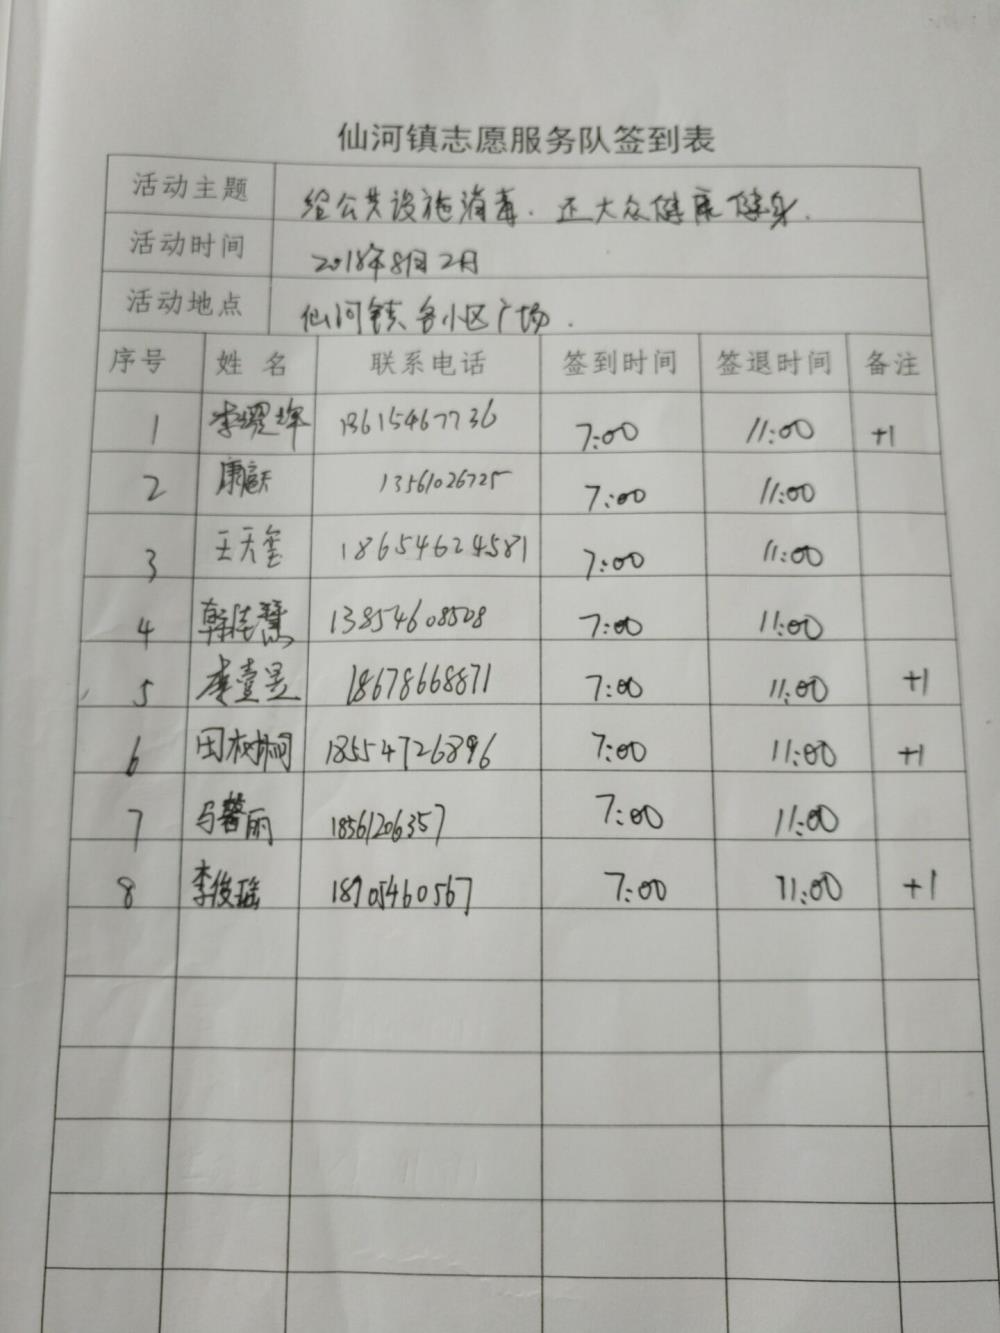 仙河镇志愿服务队签到表
活动主题 给公共设施消毒.还大众健康健身.
活动时间 2018年8月2日
活动地点 仙河镇各小区广场.
序号 姓名 联系电话 签到时间 签退时间 备注
1 李耀坤 13615467736 7:00 11:00 +1
2 康 13561026725 7:00 11:00
3 王天玺 18654624581 7:00 11:00
4 韩佳慧 13854608508 7:00 11:00
5 李壹昊 18678668871 7:00 11:00 +1
6 田树桐 18554726896 7:00 11:00 +1
7 马馨丽 18561206357 7:00 11:00
8 李俊瑶 18705460567 7:00 11:00 +1